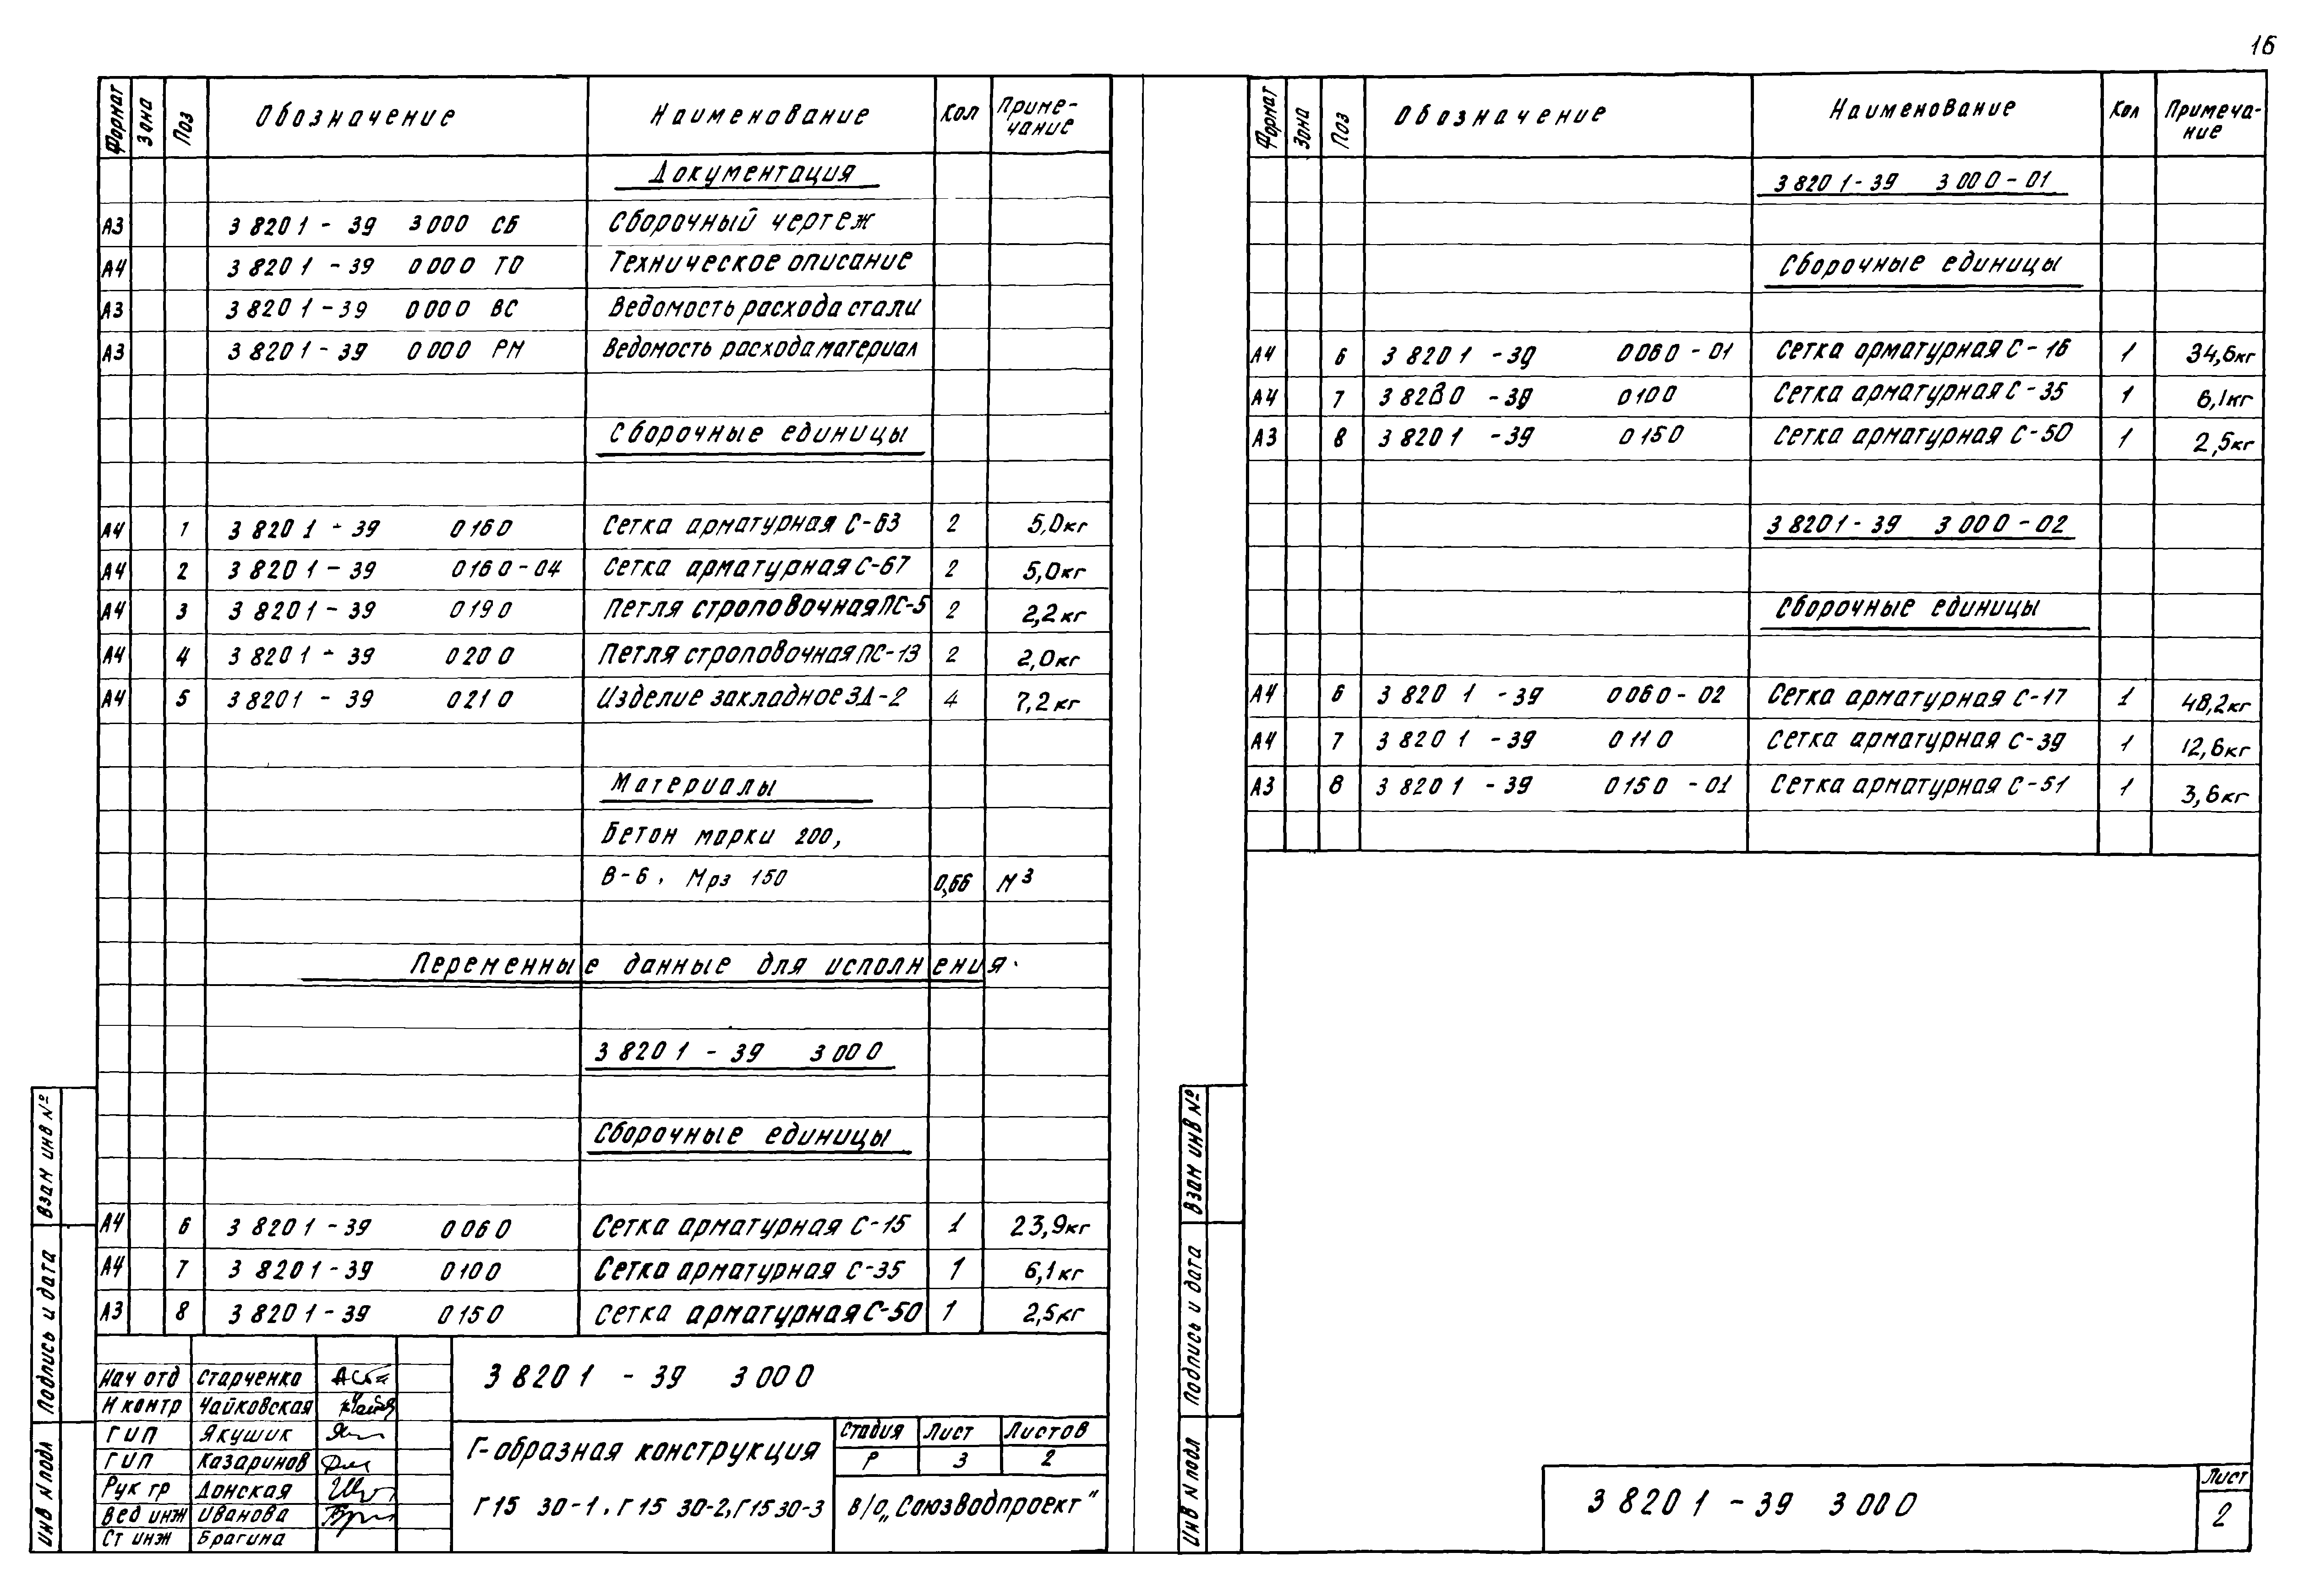 16
Формат Зона Поз Обозначение Наименование Кол Приме-
чание
Документация
А3 3 820 1 - 39 3 000 СБ Сборочный чертеж
А4 3 820 1 - 39 0 000 ТО Техническое описание
А3 3 820 1 - 39 0 000 ВС Ведомость расхода стали
А3 3 820 1 - 39 0 000 РМ Ведомость расхода материал
Сборочные единицы
А4 1 3 820 1 - 39 0 160 Сетка арматурная С-63 2 5,0кг
А4 2 3 820 1 - 39 0 160 - 04 Сетка арматурная С-67 2 5,0кг
А4 3 3 820 1 - 39 0 190 Петля строповочная ПС-5 2 2,2кг
А4 4 3 820 1 - 39 0 200 Петля строповочная ПС-13 2 2,0кг
А4 5 3 820 1 - 39 0 210 Изделие закладное ЗД-2 4 7,2кг
Материалы
Бетон марки 200,
В-6, Мрз 150 0,66 м³
Переменные данные для исполнения.
3 820 1 - 39 3 000
Сборочные единицы
А4 6 3 820 1 - 39 0 060 Сетка арматурная С-15 1 23,9кг
А4 7 3 820 1 - 39 0 100 Сетка арматурная С-35 1 6,1кг
А3 8 3 820 1 - 39 0 150 сетка арматурная С-50 1 2,5кг
3 820 1 - 39 3 000
Нач отд Старченко
Н контр Чайковская
ГИП Якушик
ГИП Казаринов
Рук гр Донская
Вед инж Иванова
Ст инж Брагина
Г-образная конструкция
Г15 30-1, Г15 30-2, Г15 30-3
Стадия Лист Листов
Р 3 2
В/О „Союзводпроект"
Взам инв №
Подпись и дата
Инв N подл
Формат Зона Поз Обозначение Наименование Кол Примеча-
ние
3 820 1 - 39 3 000 - 01
Сборочные единицы
А4 6 3 820 1 - 39 0 060 - 01 Сетка арматурная С-16 1 34,6кг
А4 7 3 8230 - 39 0 100 Сетка арматурная С-35 1 6,1кг
А3 8 3 820 1 - 39 0 150 Сетка арматурная С-50 1 2,5кг
3 820 1 - 39 3 000 - 02
Сборочные единицы
А4 6 3 820 1 - 39 0 060 - 02 Сетка арматурная С-17 1 48,2кг
А4 7 3 820 1 - 39 0 110 Сетка арматурная С-39 1 12,6кг
А3 8 3 820 1 - 39 0 150 - 01 Сетка арматурная С-51 1 3,6кг
Взам инв №
Подпись и дата
Инв N подл
3 820 1 - 39 3 000
Лист
2